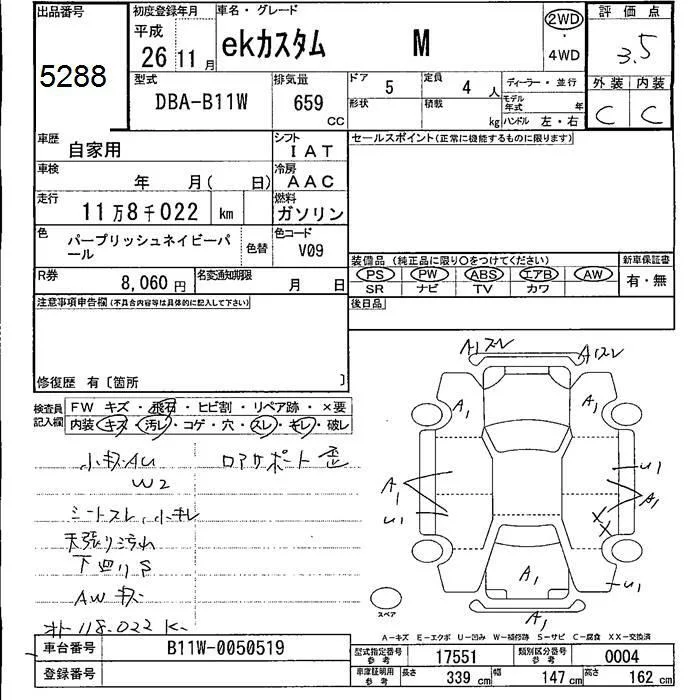 出品番号
5288
初度登録年月
平成
26 11 月
車名・グレード
ekカスタム M
2WD
・
4WD
評価点
3.5
外装 内装
C C
型式
DBA-B11W
排気量
659
CC
ドア
5
定員
4 人
形状
積載
kg
ディーラー・並行
モデル年式 年
ハンドル 左・右
車歴
自家用
シフト
IAT
車検
年 月( 日)
冷房
AAC
走行
11万8千022 km
燃料
ガソリン
色
パープリッシュネイビーパール
色替
色コード
V09
R券
8,060 円
名変通知期限
月 日
セールスポイント(正常に機能するものに限ります)
装備品(純正品に限り○をつけてください)
新車保証書
PS PW ABS エアB AW
SR ナビ TV カワ
有・無
後日品
注意事項申告欄(不具合内容等は具体的に記入して下さい)
修復歴 有〔箇所 〕
検査員記入欄
FW キズ・飛石・ヒビ割・リペア跡・×要
内装 キズ・汚レ・コゲ・穴・スレ・キレ・破レ
小キズAU ロアサポート歪
W2
シートスレ、小キレ
天張り汚れ
下廻りS
AWキズ
118.022 K
A1スレ
A1スレ
A1
A1
A1
U1
U1
A1
X
X
U1
A1
A1
スペア
A-キズ E-エクボ U-凹み W-補修跡 S-サビ C-腐食 XX-交換済
車台番号
B11W-0050519
登録番号
型式指定番号
参考
17551
類別区分番号
参考
0004
車庫証明用
参考
長さ
339 cm
幅
147 cm
高さ
162 cm